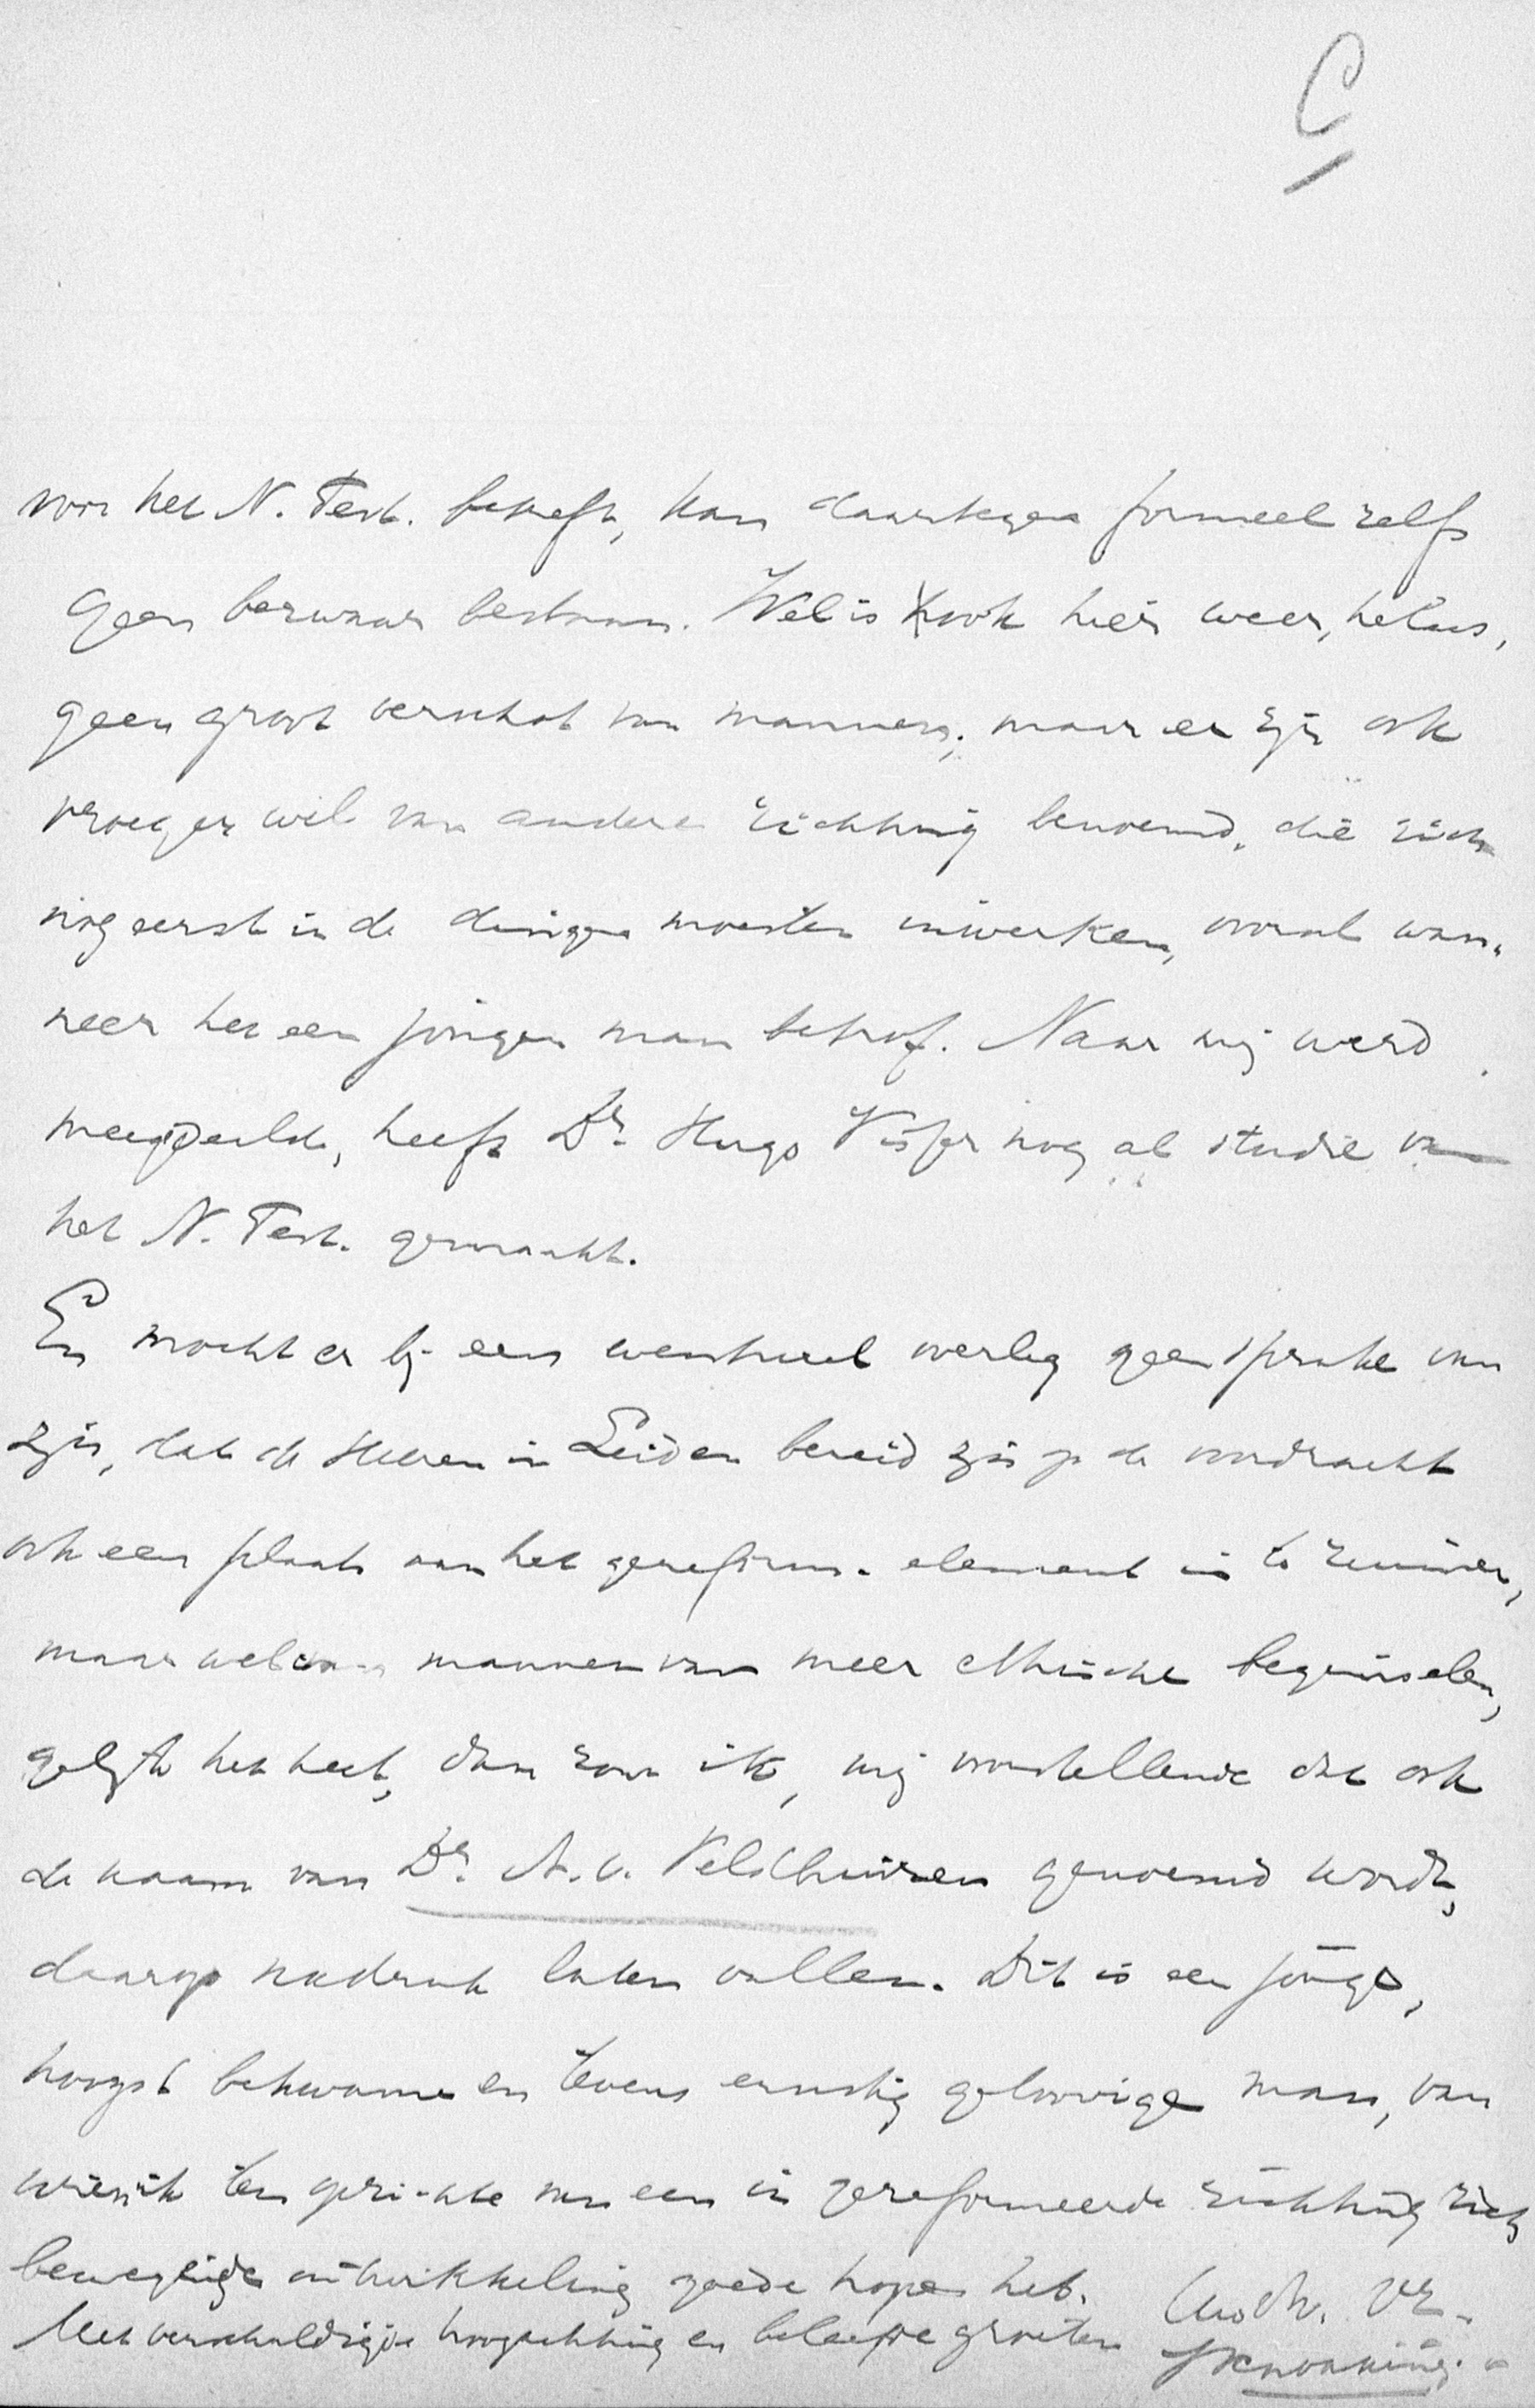 C
voor het N. Test. betreft, kan daartegen formeel zelfs
geen bezwaar bestaan. Wel is ook hier weer, helaas,
geen groot verschot van mannen; maar er zijn ook
vroeger wel van andere richting benoemd, die zich
nog eerst in de dingen moesten inwerken, vooral wan-
neer het een jongen man betrof. Naar mij werd
meegedeeld, heeft Dr. Hugo Visser nog al studie van
het N. Test. gemaakt.
En mocht er bij een eventueel overleg geen sprake van
zijn, dat de Heeren in Leiden bereid zijn op de voordracht
ook een plaats aan het gereform. element in te ruimen,
maar wel aan mannen van meer ethische beginselen,
gelijk het heet, dan zou ik, mij voorstellende dat ook
de naam van Dr. A. v. Veldhuizen genoemd wordt,
daarop nadruk laten vallen. Dit is een jonge,
hoogst bekwame en tevens ernstig geloovige man, van
wien ik ten opzichte van een in gereformeerde richting zich
bewegende ontwikkeling goede hope heb.
Met verschuldigde hoogachting en beleefde groeten